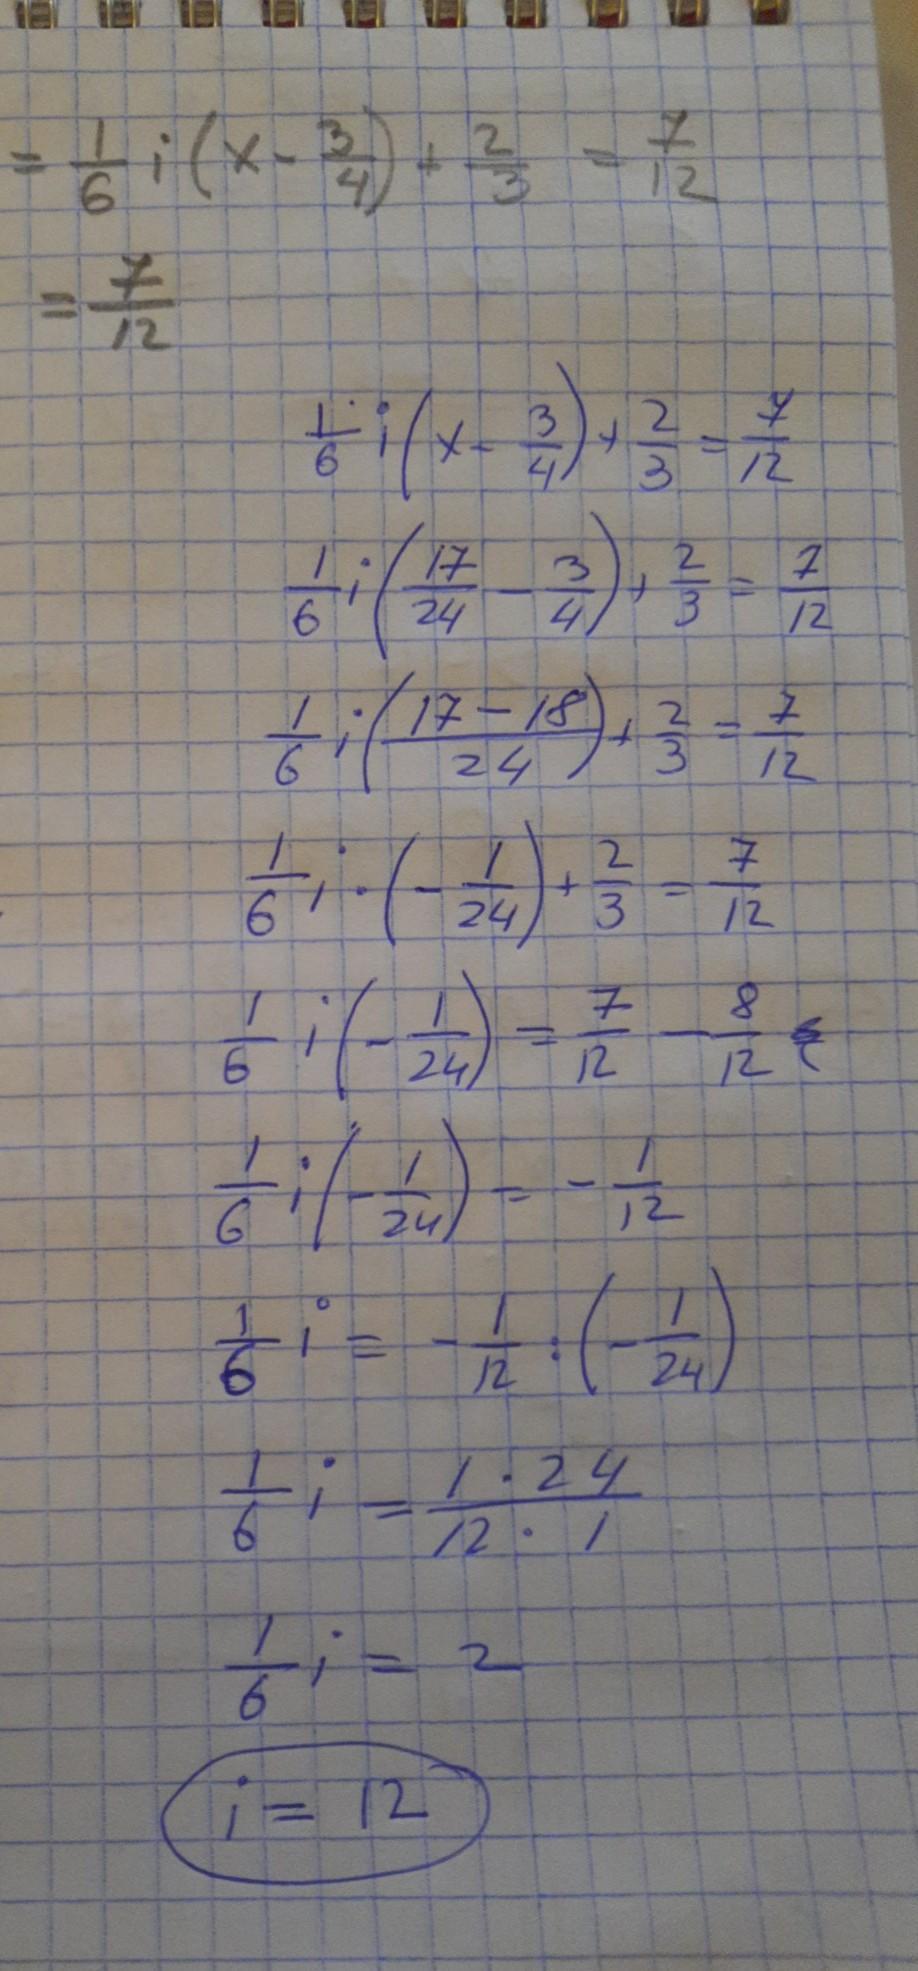 = 1/6 i (x - 3/4) + 2/3 = 7/12
= 7/12
1/6 i (x - 3/4) + 2/3 = 7/12
1/6 i (17/24 - 3/4) + 2/3 = 7/12
1/6 i ((17 - 18)/24) + 2/3 = 7/12
1/6 i · (- 1/24) + 2/3 = 7/12
1/6 i (- 1/24) = 7/12 - 8/12
1/6 i (- 1/24) = - 1/12
1/6 i = - 1/12 : (- 1/24)
1/6 i = (1 · 24)/(12 · 1)
1/6 i = 2
i = 12